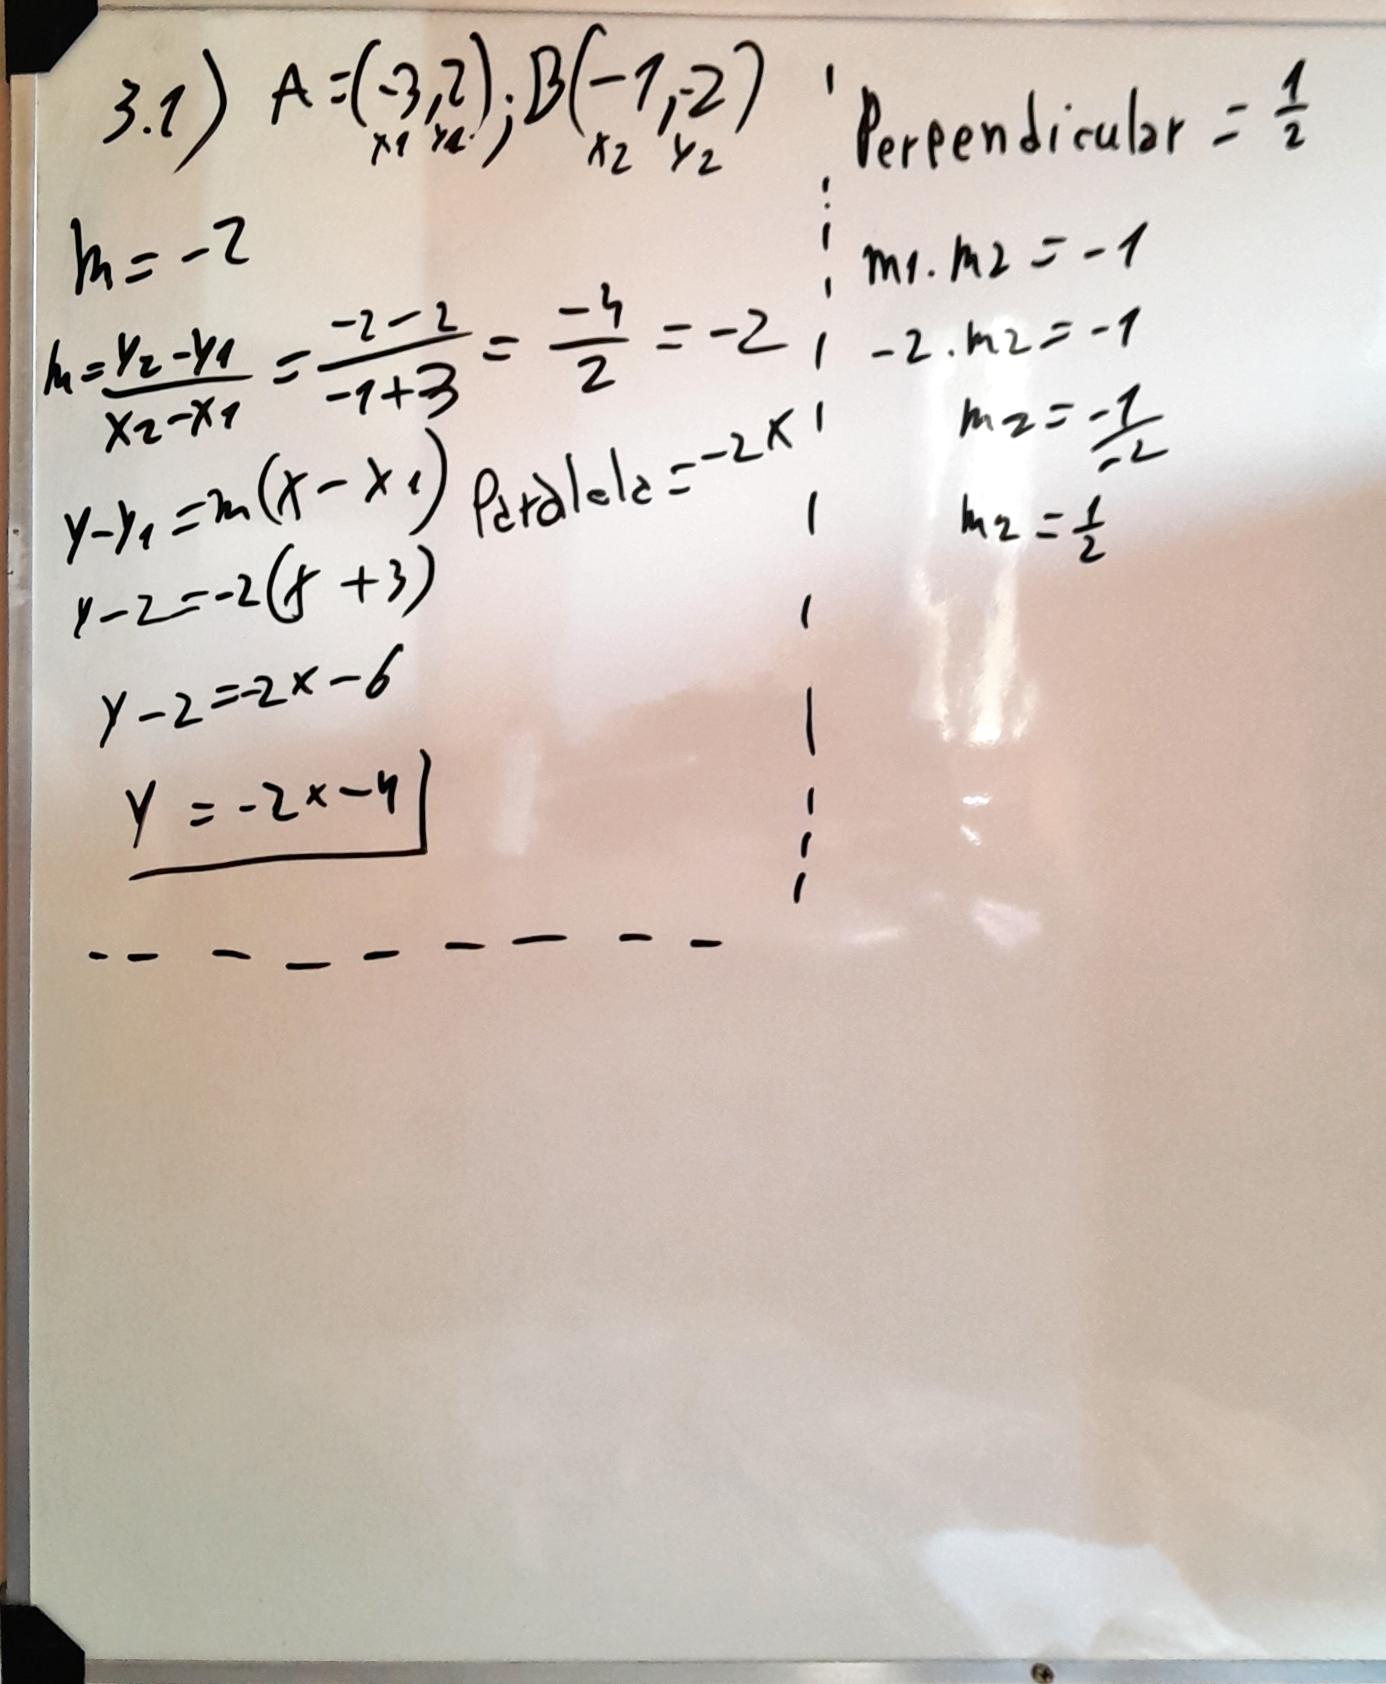 3.1) A=(-3,2);B(-1,-2)
x1 y1 x2 y2
m=-2
m=y2-y1/x2-x1 = -2-2/-1+3 = -4/2 = -2
y-y1=m(x-x1) Paralela=-2x
y-2=-2(x+3)
y-2=-2x-6
y=-2x-4
Perpendicular = 1/2
m1.m2=-1
-2.m2=-1
m2=-1/-2
m2=1/2